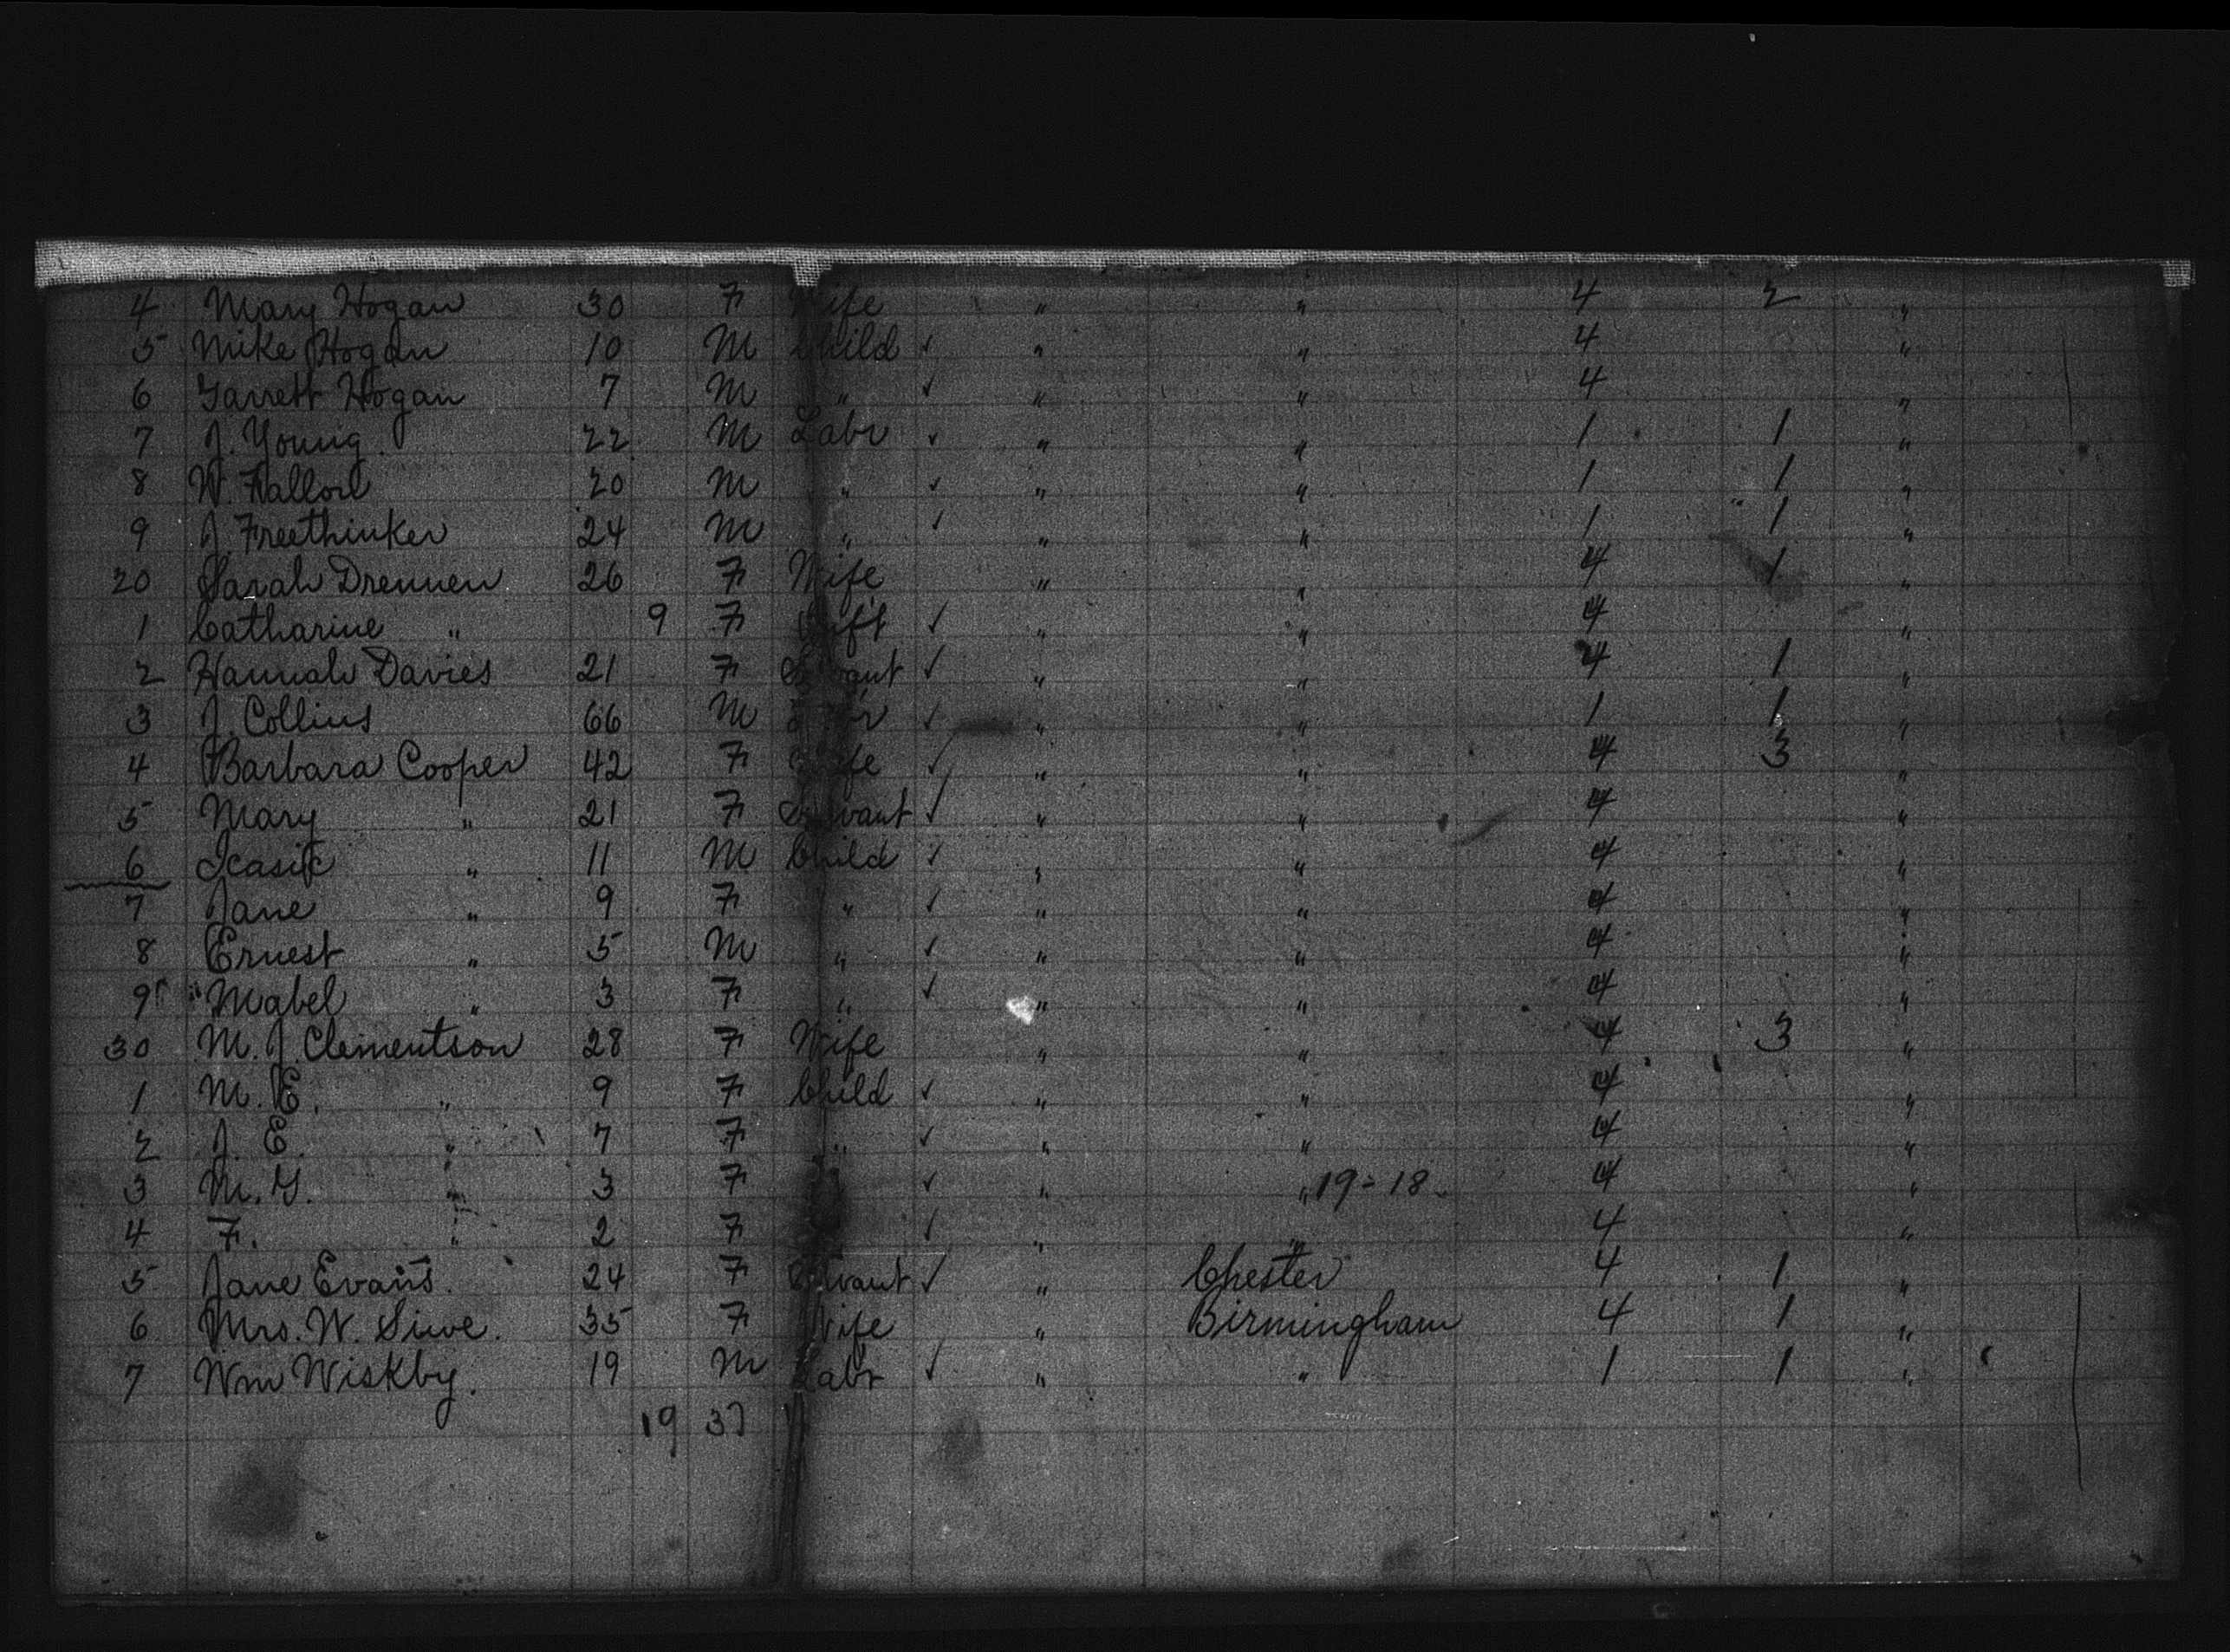 4 Mary Hogan 30 F Wife " " 4 2 "
5 Mike Hogan 10 M Child ✓ " " 4 "
6 Garrett Hogan 7 M " ✓ " " 4 "
7 J. Young 22 M Labr ✓ " " 1 1 "
8 W. 20 M " ✓ " " 1 1 "
9 J. Freethinker 24 M " ✓ " " 1 1 "
20 Sarah Drennen 26 F Wife " " 4 1 "
1 Catharine " 9 F Inft ✓ " " 4 "
2 Hannah Davies 21 F Servant ✓ " " 4 1 "
3 J. Collins 66 M Labr ✓ " " 1 1 "
4 Barbara Cooper 42 F Wife ✓ " " 4 3 "
5 Mary " 21 F Servant ✓ " " 4 "
6 " 11 M Child ✓ " " 4 "
7 Jane " 9 F " ✓ " " 4 "
8 Ernest " 5 M " ✓ " " 4 "
9 Mabel " 3 F " ✓ " " 4 "
30 M. J. Clementson 28 F Wife " " 4 3 "
1 M. E. " 9 F Child ✓ " " 4 "
2 J. E. " 7 F " ✓ " " 4 "
3 M. G. " 3 F ✓ " " 19-18 4 "
4 F. " 2 F ✓ " " 4 "
5 Jane Evans. 24 F Servant ✓ " Chester 4 1 "
6 Mrs. W. 35 F Wife " Birmingham 4 1 "
7 Wm Wiskby. 19 M Labr ✓ " " 1 1 "
19 37